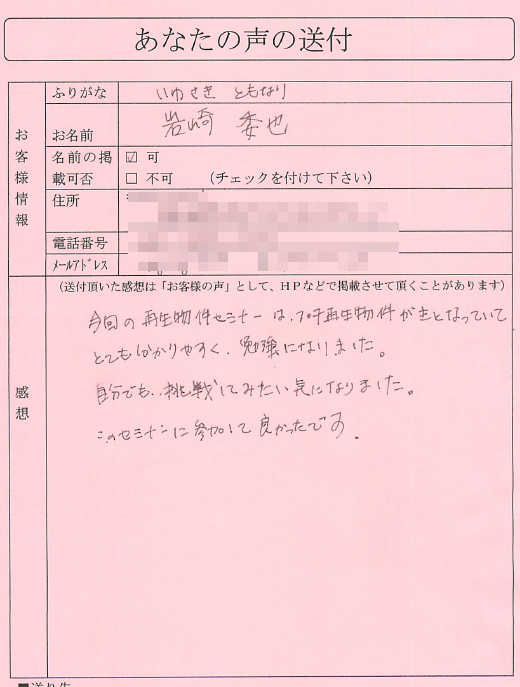 あなたの声の送付
ふりがな いわさき ともなり
お名前 岩崎 委也
名前の掲載可否 ☑ 可
□ 不可 (チェックを付けて下さい)
お客様情報
住所
電話番号
メールアドレス
(送付頂いた感想は「お客様の声」として、HPなどで掲載させて頂くことがあります)
感想
今回の再生物件セミナーは、プチ再生物件が主となっていて
とてもわかりやすく、勉強になりました。
自分でも、挑戦してみたい気になりました。
このセミナーに参加して良かったです。